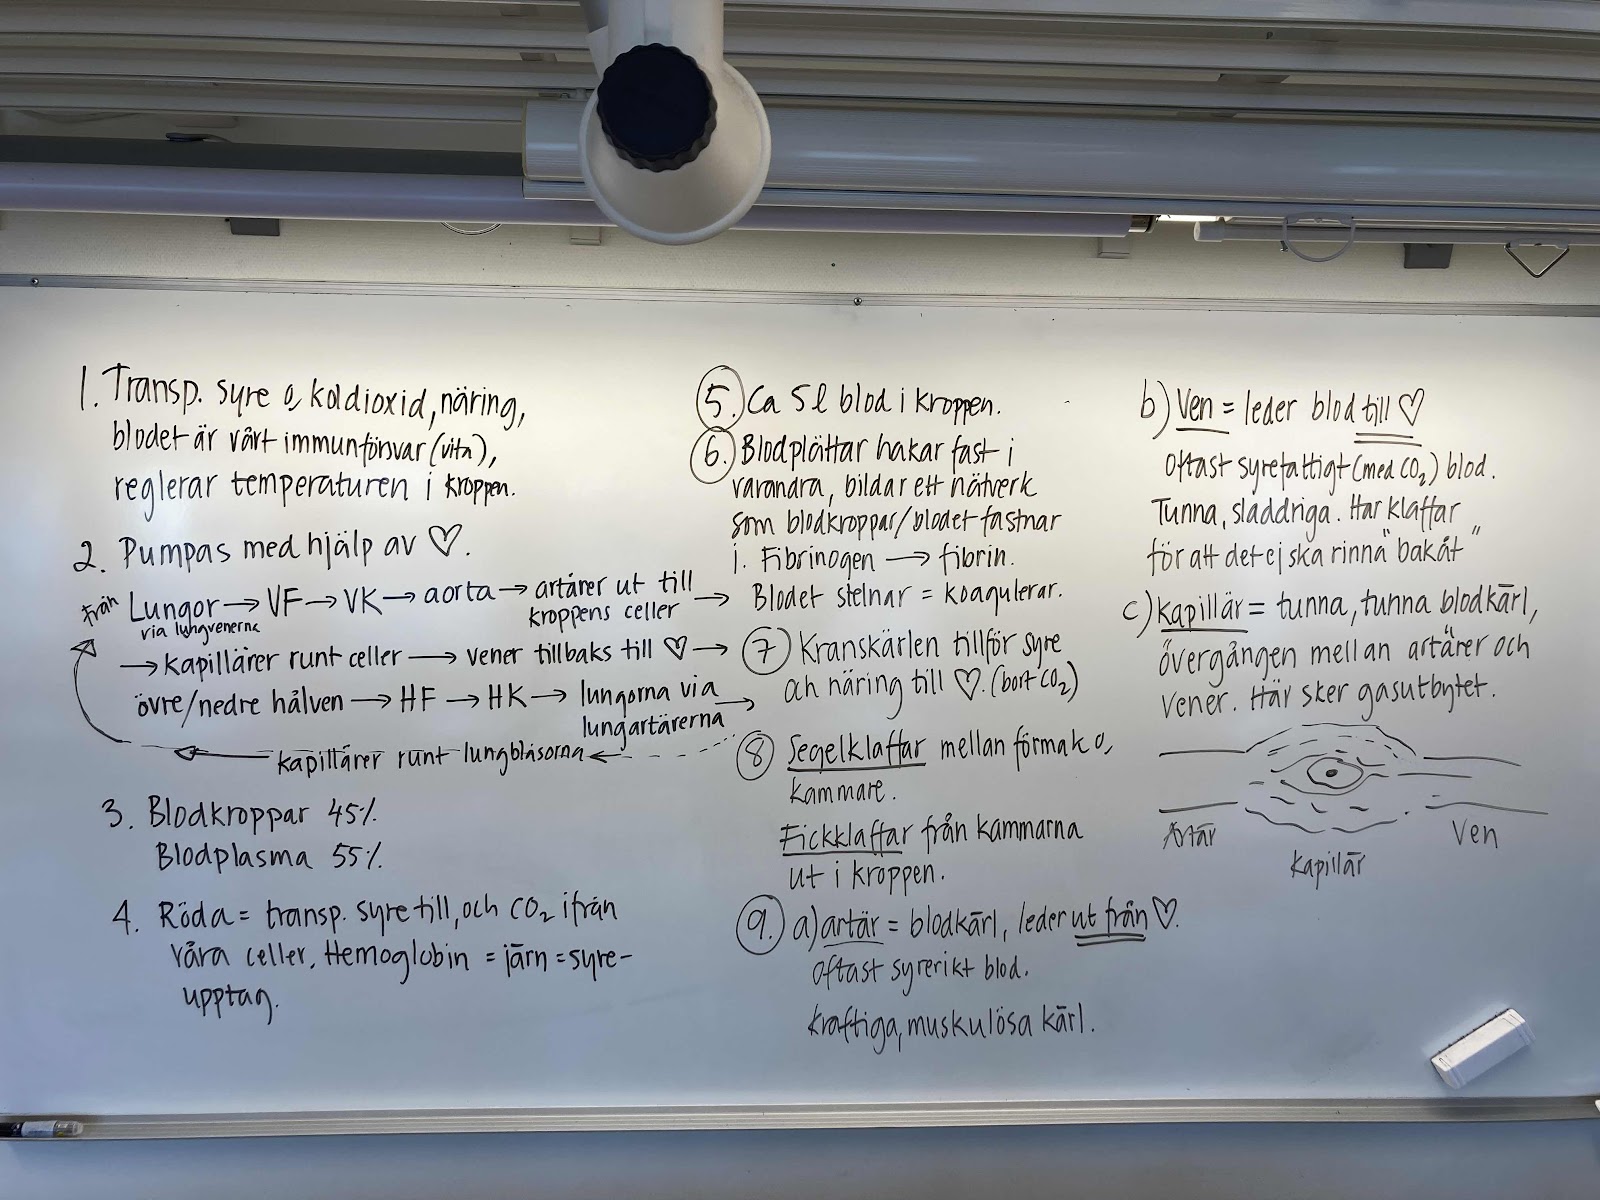 1. Transp. syre o, koldioxid, näring,
blodet är vårt immunförsvar (vita),
reglerar temperaturen i kroppen.
2. Pumpas med hjälp av ♡.
från Lungor → VF → VK → aorta → artärer ut till
via lungvenerna
kroppens celler →
→ kapillärer runt celler → vener tillbaks till ♡ →
övre/nedre hålven → HF → HK → lungorna via
lungartärerna →
← kapillärer runt lungblåsorna ←
3. Blodkroppar 45%
Blodplasma 55%
4. Röda = transp. syre till, och CO₂ ifrån
våra celler. Hemoglobin = järn = syre-
upptag.
5. Ca 5 l blod i kroppen.
6. Blodplättar hakar fast i
varandra, bildar ett nätverk
som blodkroppar/blodet fastnar
i. Fibrinogen → fibrin.
Blodet stelnar = koagulerar.
7 Kranskärlen tillför syre
och näring till ♡. (bort CO₂)
8 Segelklaffar mellan förmak o,
kammare.
Fickklaffar från kammarna
ut i kroppen.
9. a) artär = blodkärl, leder ut från ♡.
oftast syrerikt blod.
kraftiga, muskulösa kärl.
b) Ven = leder blod till ♡
oftast syrefattigt (med CO₂) blod.
Tunna, sladdriga. Har klaffar
för att det ej ska rinna "bakåt"
c) kapillär = tunna, tunna blodkärl,
övergången mellan artärer och
vener. Här sker gasutbytet.
Artär
Ven
kapillär